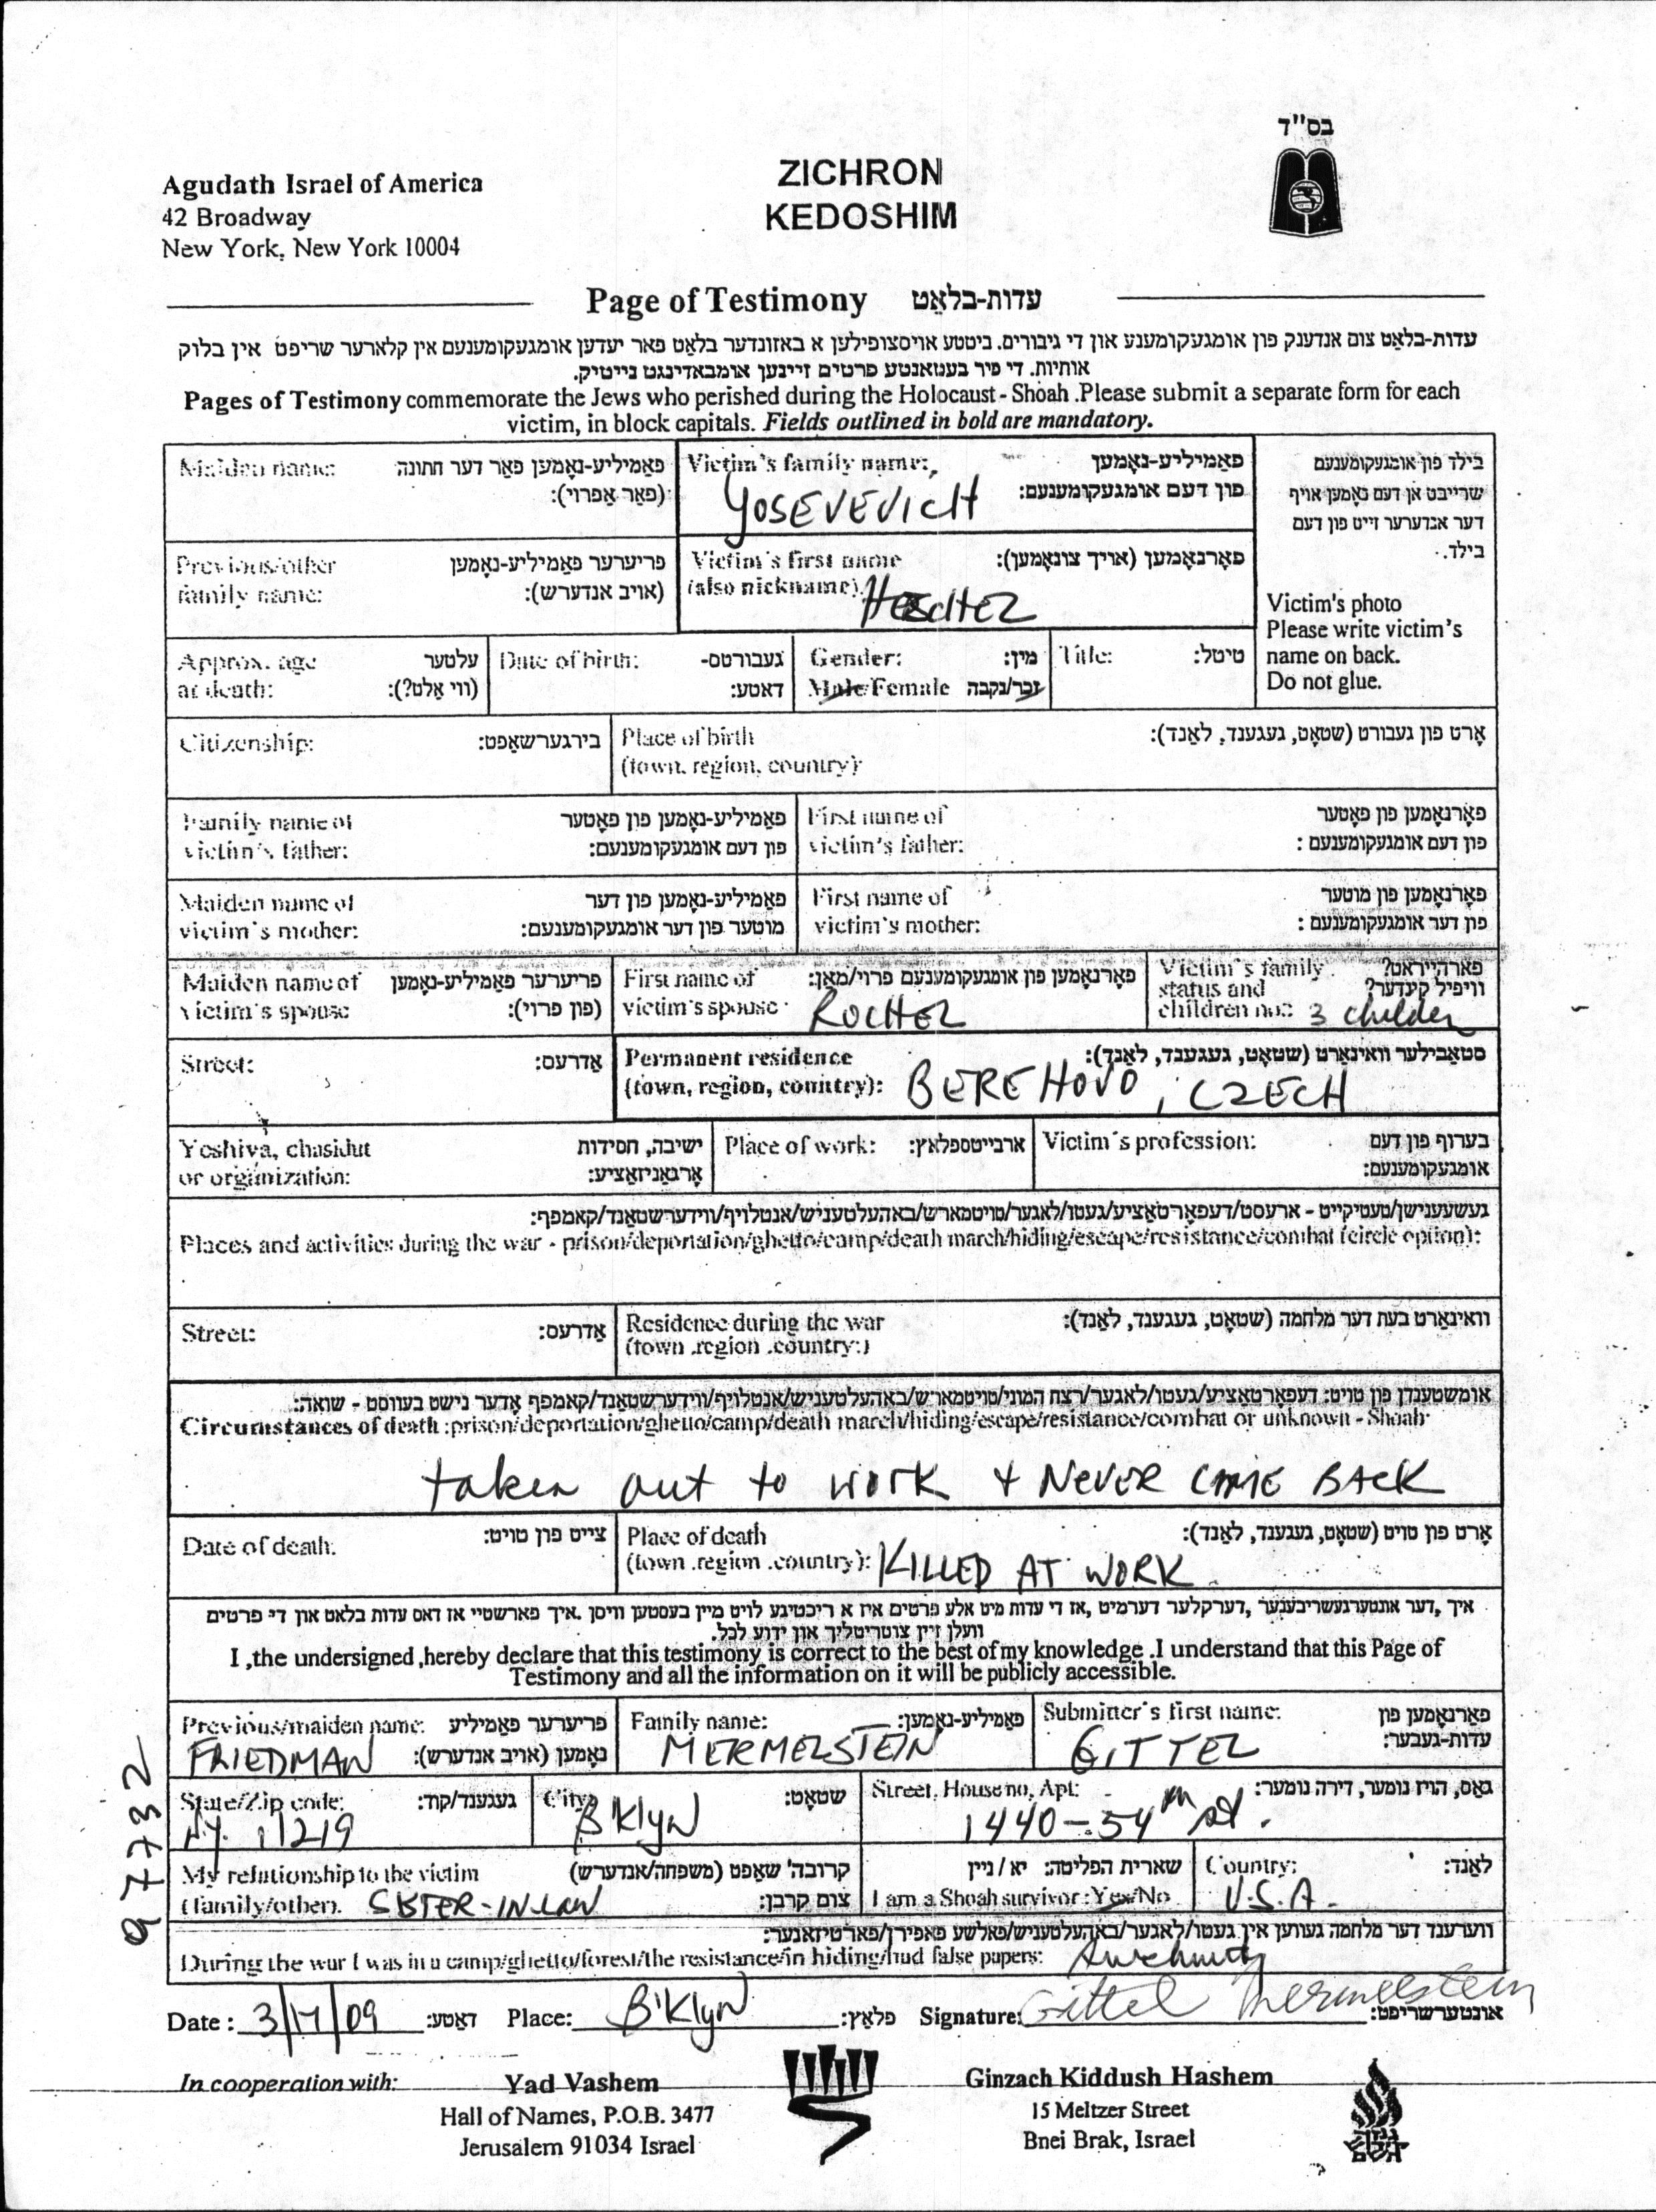 בס"ד
Agudath Israel of America
42 Broadway
New York, New York 10004
ZICHRON
KEDOSHIM
Page of Testimony עדות-בלאַט
עדות-בלאַט צום אנדענק פון אומגעקומענע און די גיבורים. ביטע אויסצופילען א באזונדער בלאַט פאר יעדען אומגעקומענעם אין קלארער שריפט אין בלוק
אותיות. די פיר בעטאנטע פרטים זיינען אומבאדינגט נייטיק.
Pages of Testimony commemorate the Jews who perished during the Holocaust - Shoah .Please submit a separate form for each
victim, in block capitals. Fields outlined in bold are mandatory.
Maiden name: פאַמיליע-נאָמען פאַר דער חתונה
(פאַר אַפרוי):
Victim's family name: פאַמיליע-נאָמען
פון דעם אומגעקומענעם:
YOSEVEVICH
בילד פון אומגעקומענעם
שרייבט אן דעם נאָמען אויף
דער אנדערער זייט פון דעם
בילד.
Previous/other פריערער פאַמיליע-נאָמען
family name: (אויב אנדערש):
Victim's first name פאָרנאָמען (אויך צונאָמען):
(also nickname)
Victim's photo
Please write victim's
name on back.
Do not glue.
Approx. age עלטער
at death: (ווי אַלט?):
Date of birth: געבורטס-
דאַטע:
Gender: מין:
Male/Female זכר/נקבה
Title: טיטל:
Citizenship: בירגערשאַפט:
Place of birth אָרט פון געבורט (שטאָט, געגענד, לאַנד):
(town, region, country):
Family name of פאַמיליע-נאָמען פון פאָטער
victim's father: פון דעם אומגעקומענעם:
First name of פאָרנאָמען פון פאָטער
victim's father: פון דעם אומגעקומענעם :
Maiden name of פאַמיליע-נאָמען פון דער
victim's mother: מוטער פון דער אומגעקומענעם:
First name of פאָרנאָמען פון מוטער
victim's mother: פון דער אומגעקומענעם :
Maiden name of פריערער פאַמיליע-נאָמען
victim's spouse (פון פרוי):
First name of פאָרנאָמען פון אומגעקומענעם פרוי/מאַן:
victim's spouse : ROCHEL
Victim's family פארהייראט?
status and וויפיל קינדער?
children no.: 3 childen
Street: אַדרעס:
Permanent residence סטאַבילער וואוינאָרט (שטאָט, געגענד, לאַנד):
(town, region, country): BEREHOVO, CZECH
Yeshiva, chasidut ישיבה, חסידות
or organization: אָרגאַניזאַציע:
Place of work: ארבייטספלאץ:
Victim's profession: בערוף פון דעם
אומגעקומענעם:
געשעענישן/טעטיקייט - ארעסט/דעפּאָרטאַציע/געטו/לאגער/טויטמארש/באהעלטעניש/אנטלויף/ווידערשטאַנד/קאמפף:
Places and activities during the war - prison/deportation/ghetto/camp/death march/hiding/escape/resistance/combat (circle option):
Street: אַדרעס:
Residence during the war וואוינאָרט בעת דער מלחמה (שטאָט, געגענד, לאַנד):
(town .region .country:)
אומשטענדן פון טויט: דעפּאָרטאַציע/געטו/לאגער/רצח המוני/טויטמארש/באהעלטעניש/אנטלויף/ווידערשטאַנד/קאמפף אָדער נישט בעוואוסט - שואה:
Circumstances of death :prison/deportation/ghetto/camp/death march/hiding/escape/resistance/combat or unknown - Shoah:
taken out to work + NEVER CAME BACK
Date of death: צייט פון טויט:
Place of death אָרט פון טויט (שטאָט, געגענד, לאַנד):
(town .region .country): KILLED AT WORK
איך ,דער אונטערגעשריבענער ,דערקלער דערמיט ,אז די עדות מיט אלע פרטים איז א ריכטיגע לויט מיין בעסטען וויסן .איך פארשטיי אז דאס עדות בלאט און די פרטים
וועלן זיין צוטריטליך און ידוע לכל.
I ,the undersigned ,hereby declare that this testimony is correct to the best of my knowledge .I understand that this Page of
Testimony and all the information on it will be publicly accessible.
Previous/maiden name: פריערער פאַמיליע
FRIEDMAN נאָמען (אויב אנדערש):
Family name: פאַמיליע-נאָמען:
MERMELSTEIN
Submitter's first name: פאָרנאָמען פון
עדות-געבער:
GITTEL
State/Zip code: געגענד/קוד:
N.Y. 11219
City: שטאָט:
B'Klyn
Street, House no, Apt: גאַס, הויז נומער, דירה נומער:
1440-54th st.
My relationship to the victim קרובה' שאפט (משפחה/אנדערש)
(family/other). SISTER-IN-LAW צום קרבן:
שארית הפליטה: יא / ניין
I am a Shoah survivor :Yes/No
Country: לאַנד:
U.S.A.
ווערענד דער מלחמה געווען אין געטו/לאגער/באַהעלטעניש/פאלשע פאפירן/פארטיזאנער:
During the war I was in a camp/ghetto/forest/the resistance/in hiding/had false papers:
97732
Date : 3/17/09 דאַטע: Place: B'Klyn פלאַץ: Signature: Gittel Mermelstein אונטערשריפט:
In cooperation with: Yad Vashem
Hall of Names, P.O.B. 3477
Jerusalem 91034 Israel
Ginzach Kiddush Hashem
15 Meltzer Street
Bnei Brak, Israel